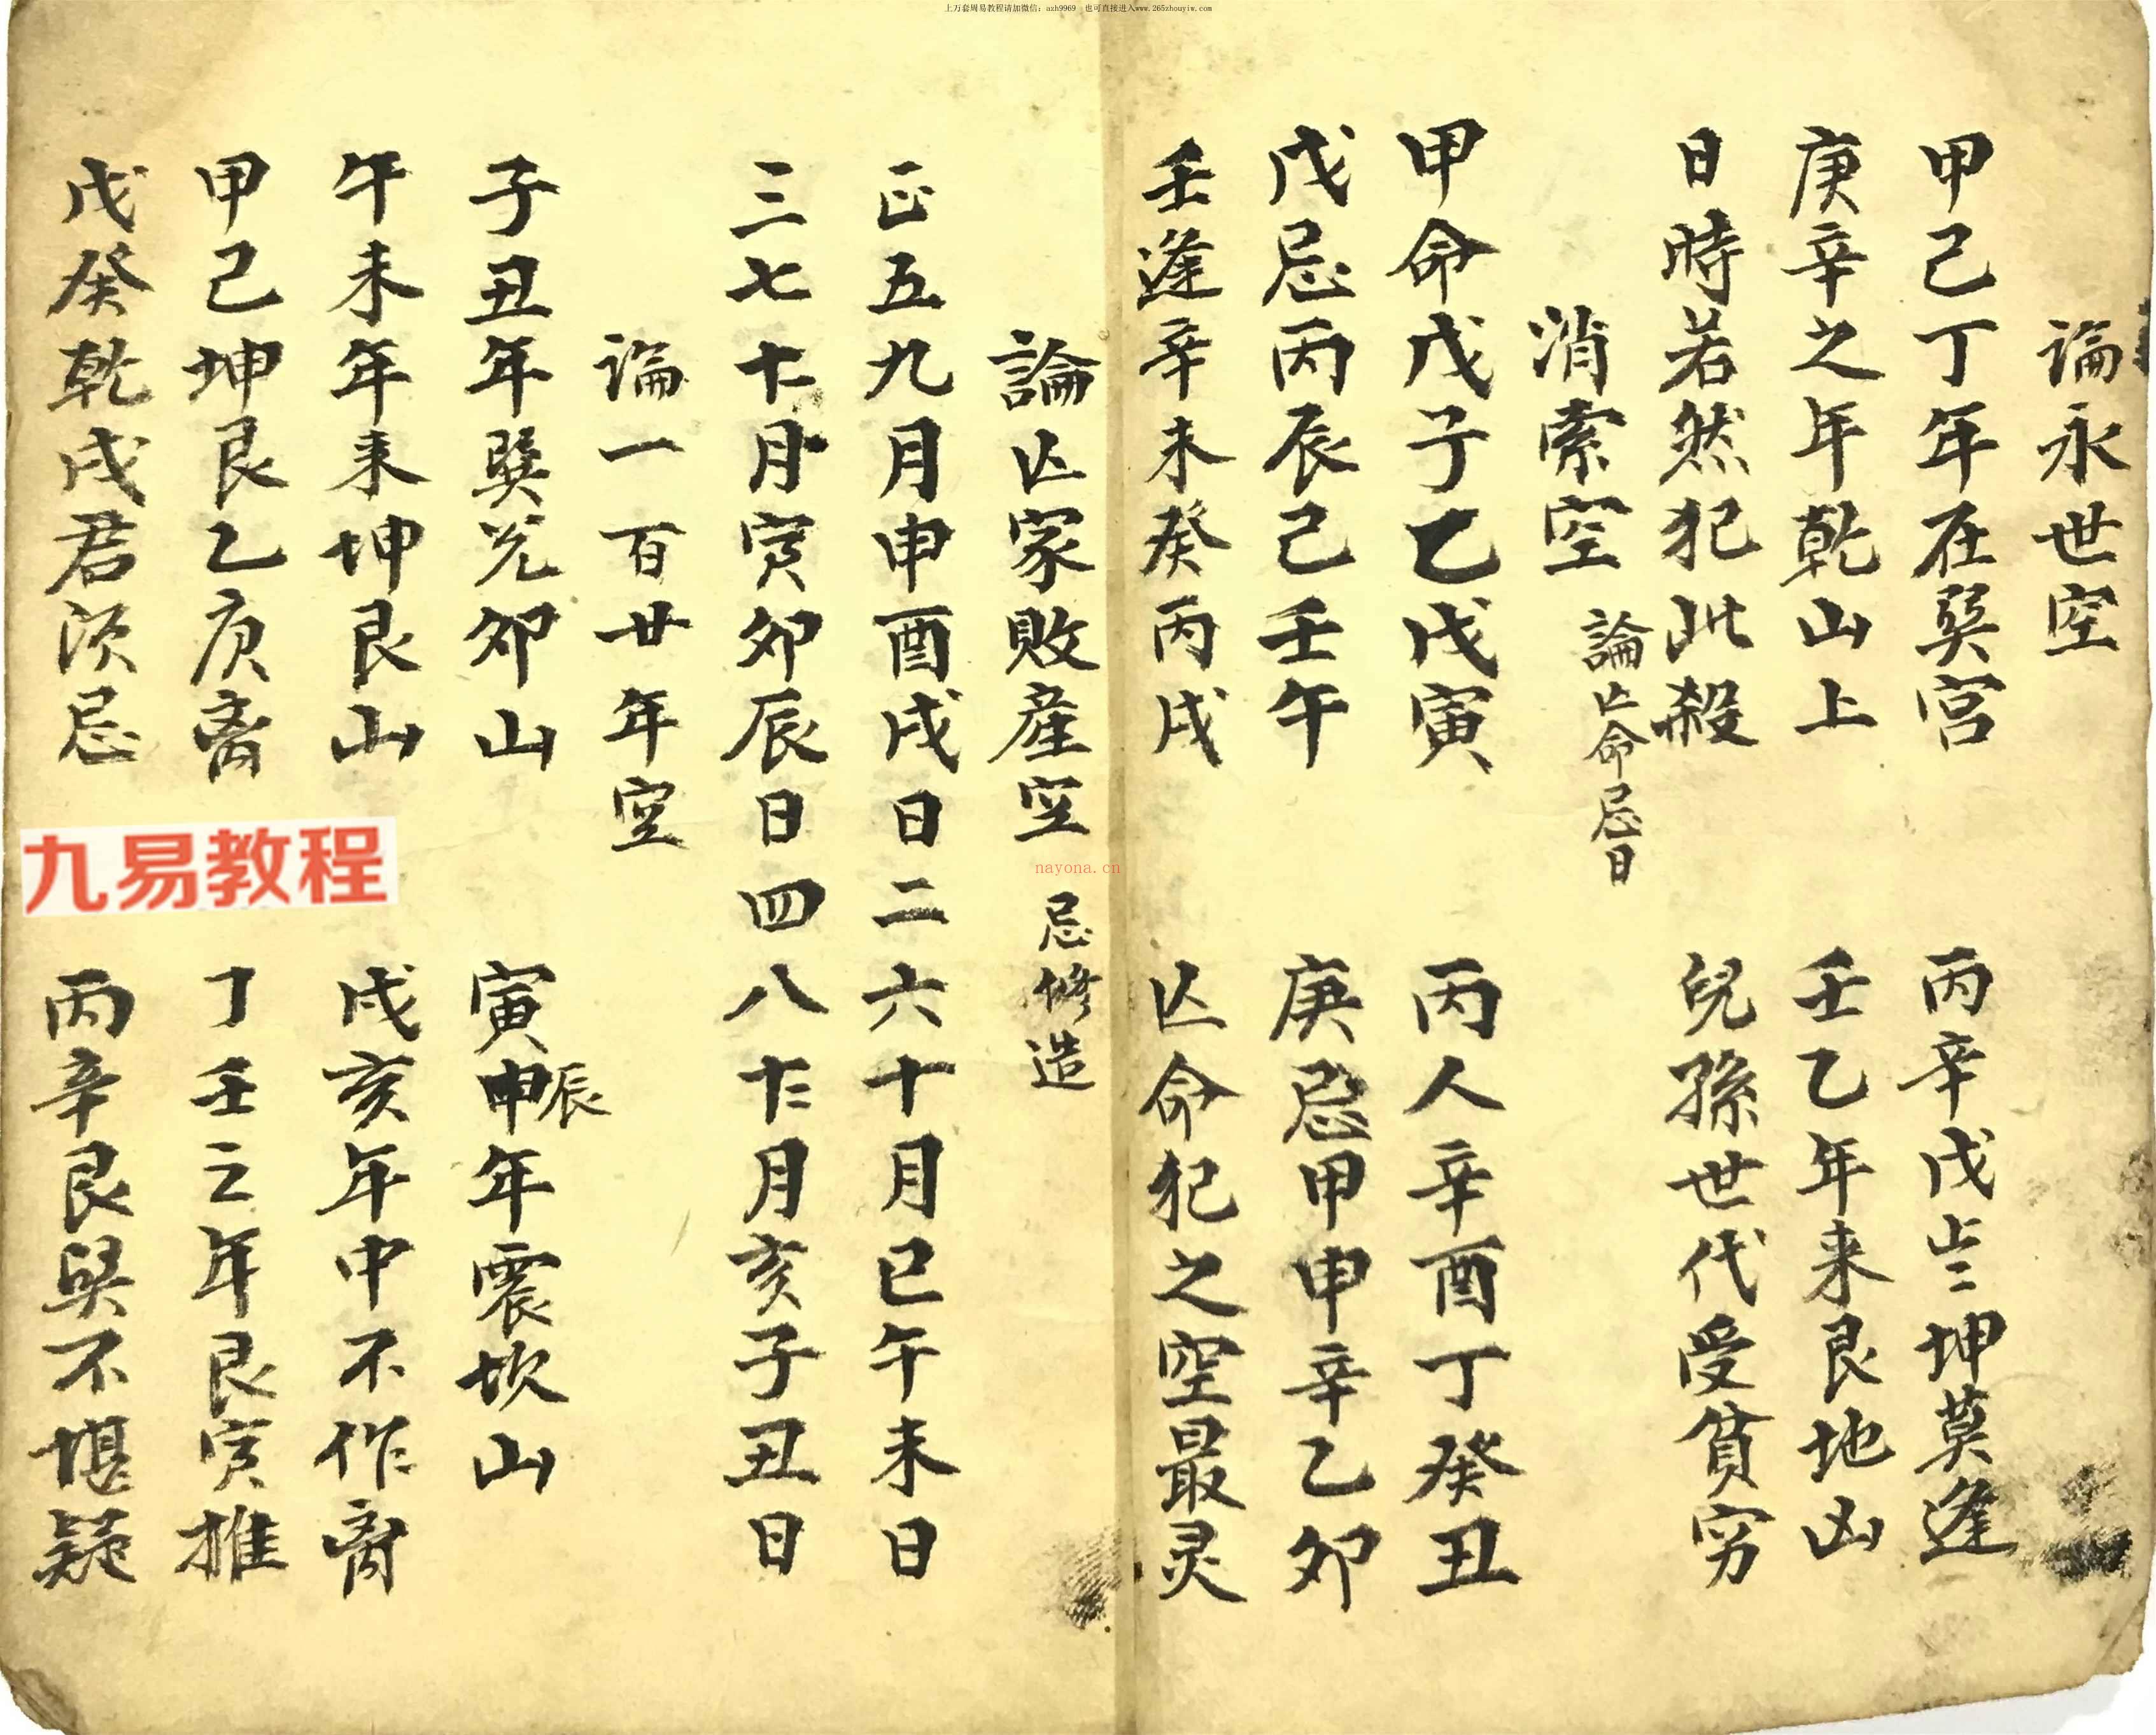 上万套周易教程请加微信：azh9969　也可直接进入www.265zhouyiw.com
論永世空
甲己丁年在巽宫　丙辛戊上坤莫逢
庚辛之年乾山上　壬乙年来艮地凶
日時若然犯此殺　兒孫世代受貧穷
消索空 論亾命忌日
甲命戊子乙戊寅　丙人辛酉丁癸丑
戊忌丙辰己壬午　庚忌甲申辛乙卯
壬逢辛未癸丙戌　亾命犯之空最灵
論亾家敗產空 忌修造
正五九月申酉戌日二六十月巳午未日
三七十一月寅卯辰日四八十二月亥子丑日
論一百廿年空
子丑年巽兑卯山　寅申辰年震坎山
午未年来坤艮山　戌亥年中不作离
甲己坤艮乙庚离　丁壬之年艮寅推
戊癸乾戌君须忌　丙辛艮巽不堪疑
九易教程
nayona.cn